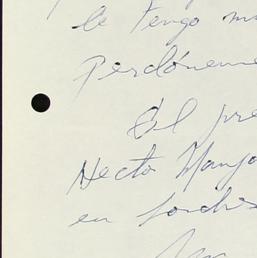 le tengo m
Perdóneme
El pre
Hecto Manj
en Londres